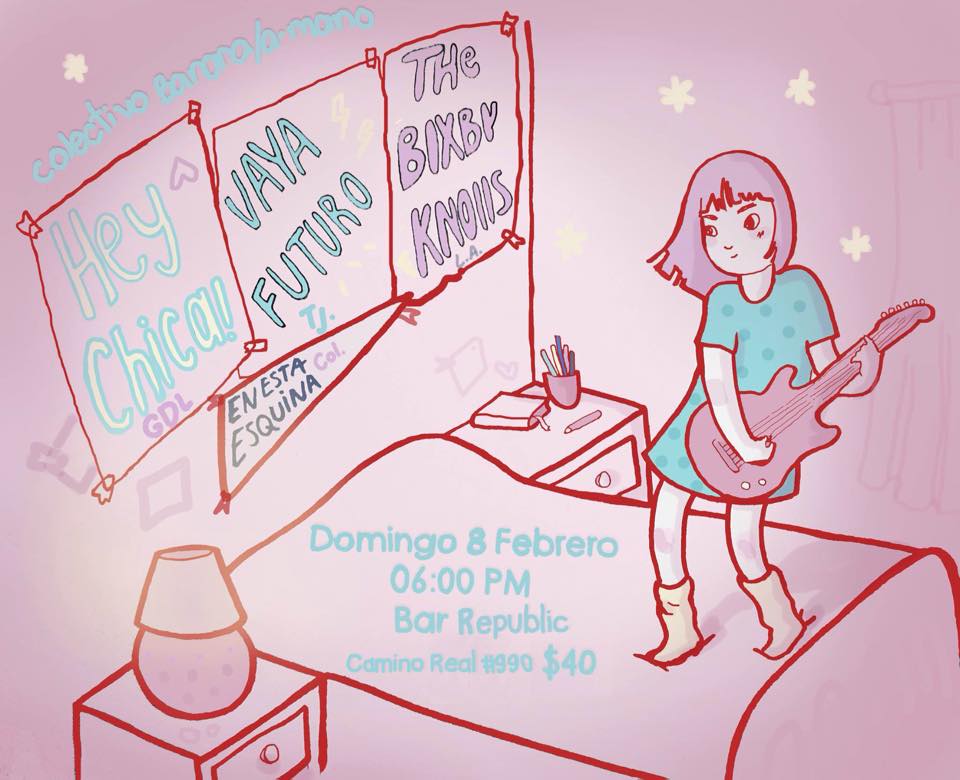 colectivo Banana/a-mano
Hey
Chica!
GDL
VAYA
FUTURO
TJ.
THe
BIXBY
KNOllS
L.A.
EN ESTA
ESQUINA
Col.
Domingo 8 Febrero
06:00 PM
Bar Republic
Camino Real #990 $40